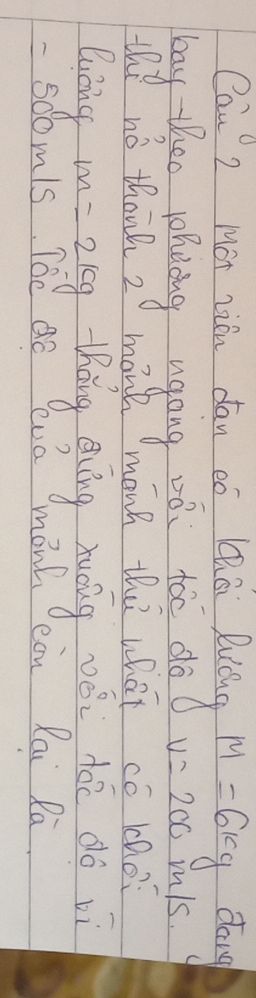 Câu 2 một viên đạn có khối lượng M = 6kg đang
bay theo phương ngang với tốc độ v = 200 m/s.
thì nổ thành 2 mảnh mảnh thứ nhất có khối
lượng m = 2kg thẳng đứng xuống với tốc độ v1
= 500 m/s. Tốc độ của mảnh còn lại là